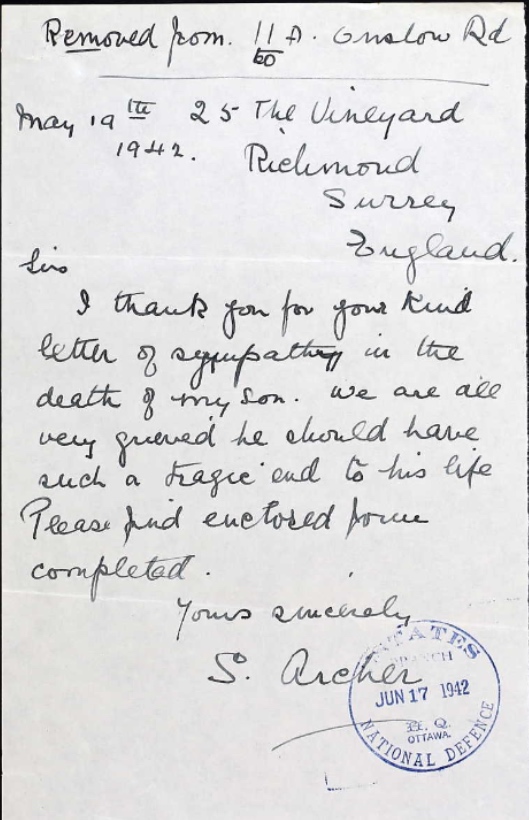 Removed from. 11 A. Onslow Rd
to
May 19th 25 The Vineyard
1942. Richmond
Surrey
England.
Sir
I thank you for your kind
letter of sympathy in the
death of my son. We are all
very grieved he should have
such a tragic end to his life
Please find enclosed form
completed.
Yours sincerely
S. Archer
ESTATES
BRANCH
JUN 17 1942
H. Q.
OTTAWA.
NATIONAL DEFENCE